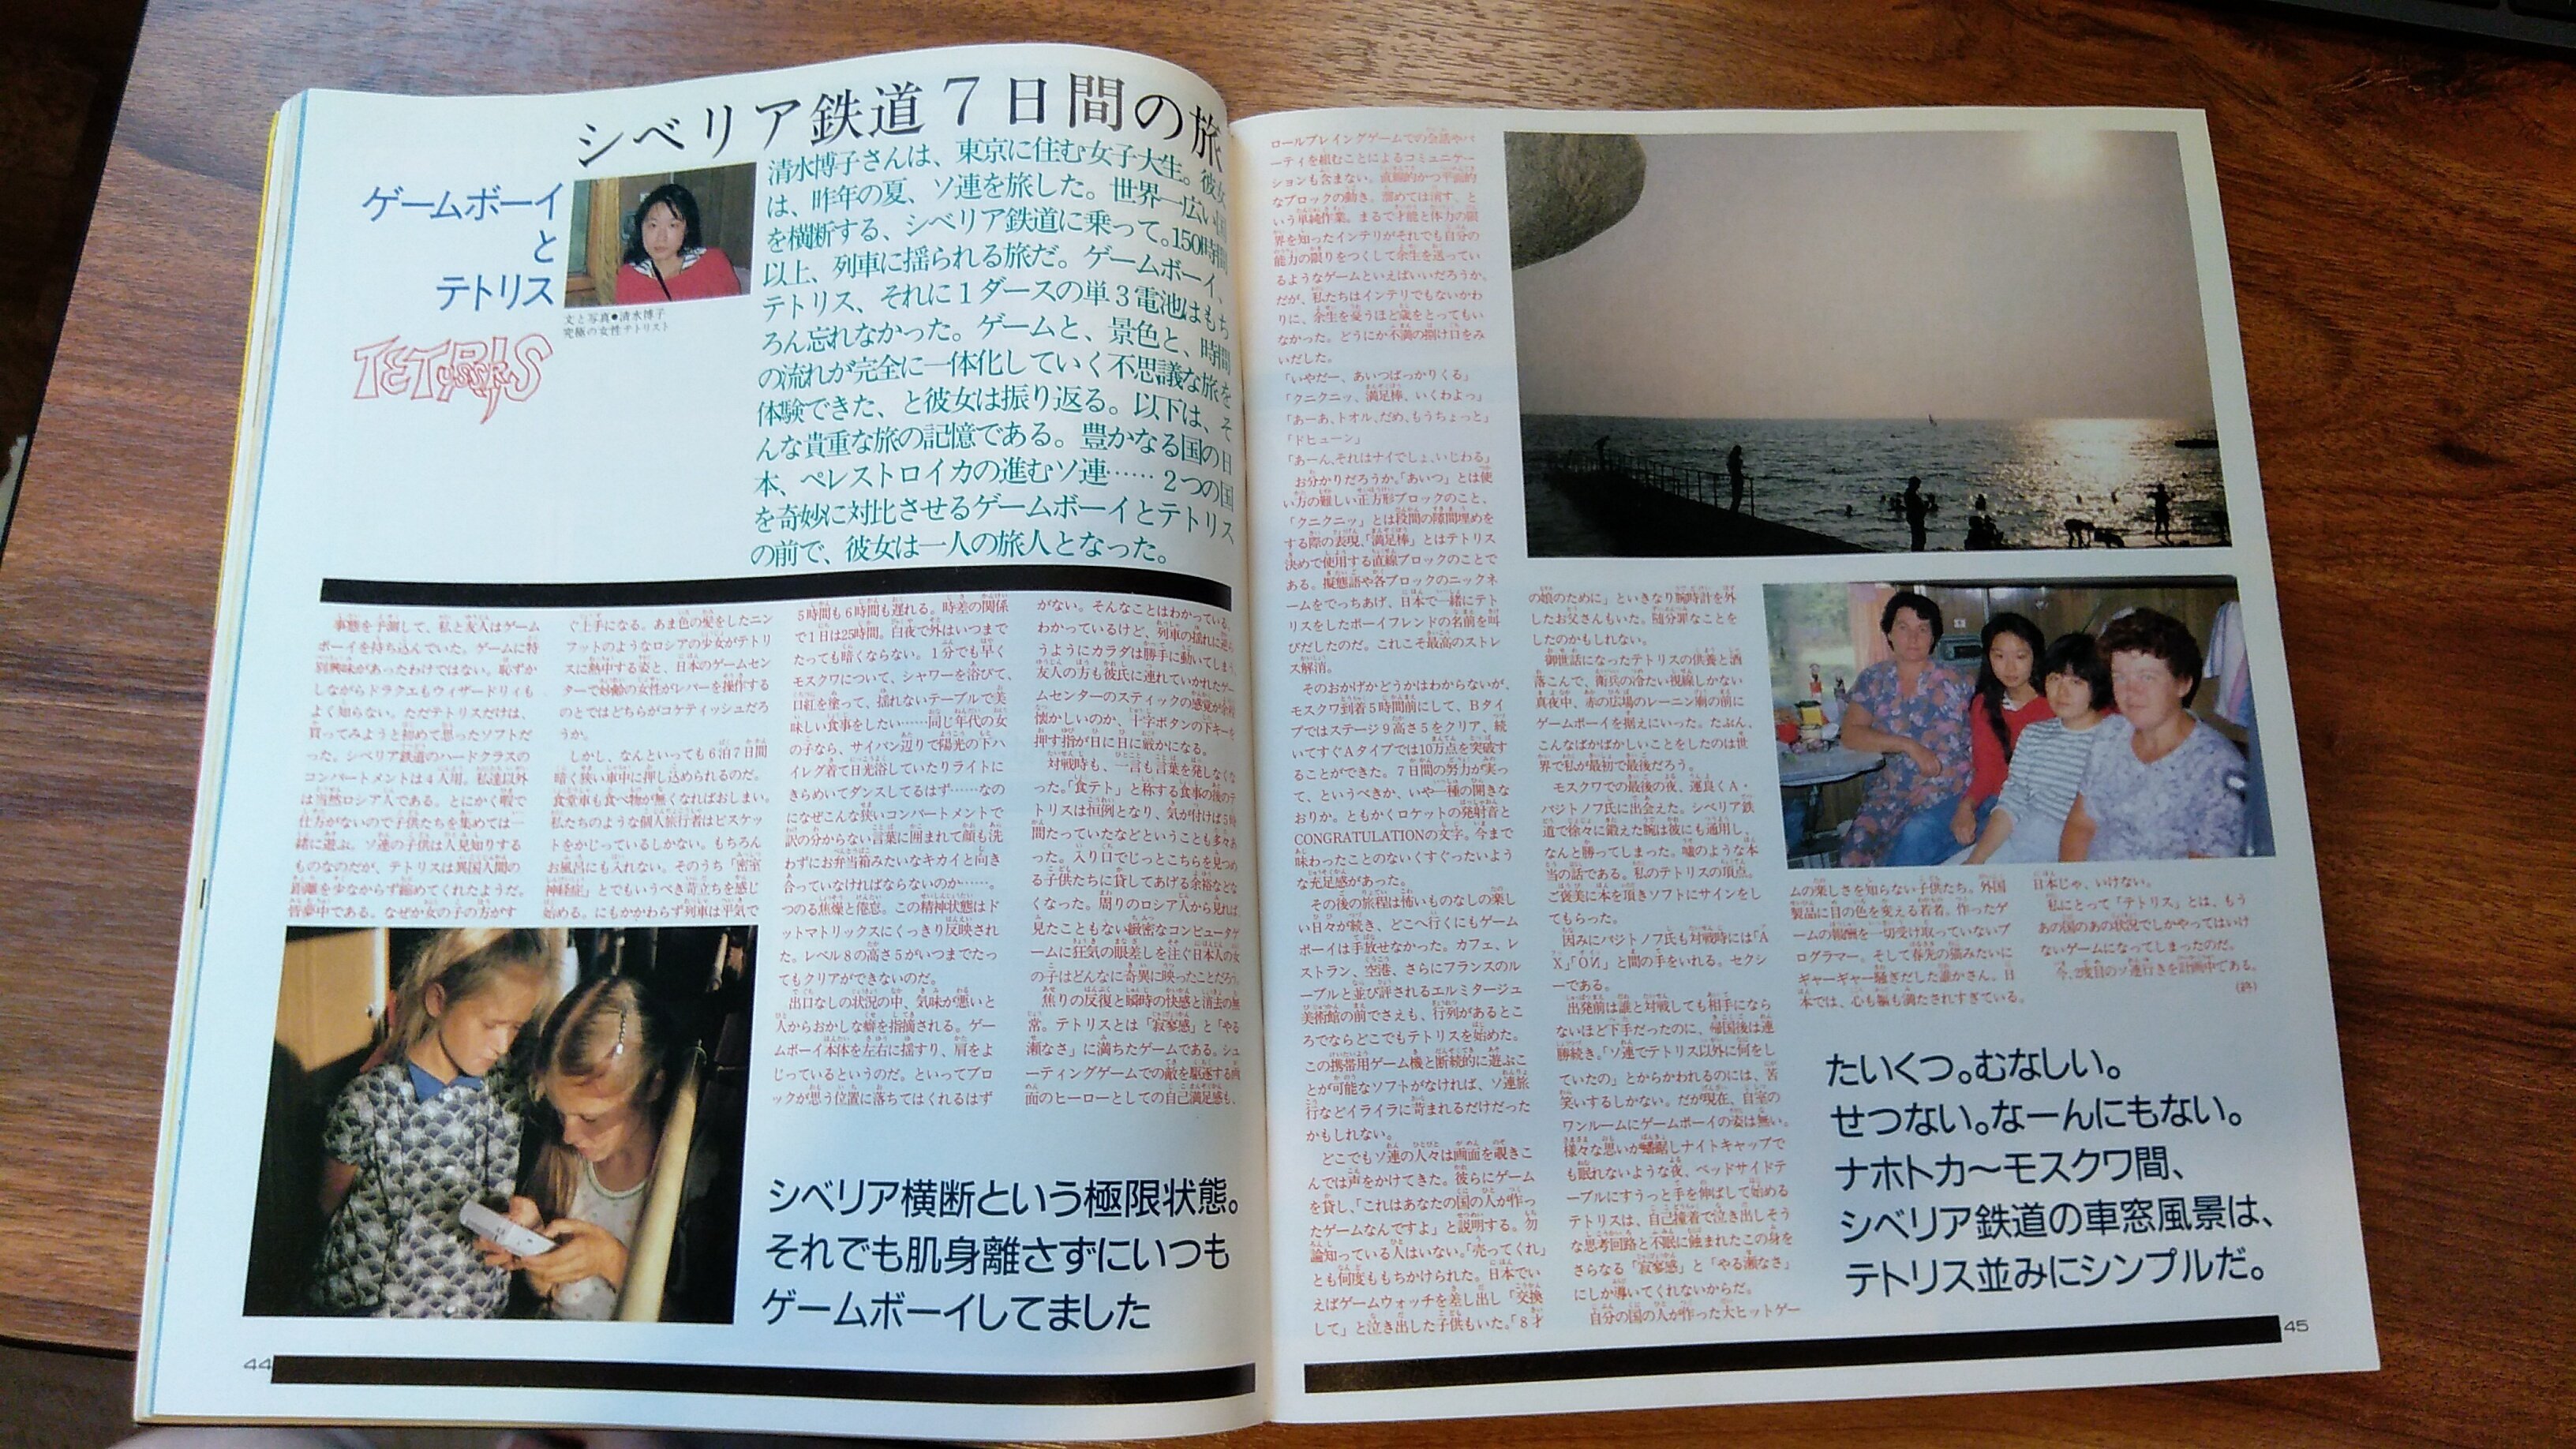 シベリア鉄道7日間の旅
ゲームボーイ
と
テトリス
TETRIS
文と写真●清水博子
究極の女性テトリスト
清水博子さんは、東京に住む女子大生。彼女
は、昨年の夏、ソ連を旅した。世界一広い国
を横断する、シベリア鉄道に乗って。150時間
以上、列車に揺られる旅だ。ゲームボーイ、
テトリス、それに1ダースの単3電池はもち
ろん忘れなかった。ゲームと、景色と、時間
の流れが完全に一体化していく不思議な旅を
体験できた、と彼女は振り返る。以下は、そ
んな貴重な旅の記憶である。豊かなる国の日
本、ペレストロイカの進むソ連……2つの国
を奇妙に対比させるゲームボーイとテトリス
の前で、彼女は一人の旅人となった。
事態を予測して、私と友人はゲーム
ボーイを持ち込んでいた。ゲームに特
別興味があったわけではない。恥ずか
しながらドラクエもウィザードリィも
よく知らない。ただテトリスだけは、
買ってみようと初めて思ったソフトだ
った。シベリア鉄道のハードクラスの
コンパートメントは4人用。私達以外
は当然ロシア人である。とにかく暇で
仕方がないので子供たちを集めては一
緒に遊ぶ。ソ連の子供は人見知りする
ものなのだが、テトリスは異国人間の
距離を少なからず縮めてくれたようだ。
皆夢中である。なぜか女の子の方がす
ぐ上手になる。あま色の髪をしたニン
フットのようなロシアの少女がテトリ
スに熱中する姿と、日本のゲームセン
ターで妙齢の女性がレバーを操作する
のとではどちらがコケティッシュだろ
うか。
しかし、なんといっても6泊7日間
暗く狭い車中に押し込められるのだ。
食堂車も食べ物が無くなればおしまい。
私たちのような個人旅行者はビスケッ
トをかじっているしかない。もちろん
お風呂にも入れない。そのうち「密室
神経症」とでもいうべき苛立ちを感じ
始める。にもかかわらず列車は平気で
5時間も6時間も遅れる。時差の関係
で1日は25時間。白夜で外はいつまで
たっても暗くならない。1分でも早く
モスクワについて、シャワーを浴びて、
口紅を塗って、揺れないテーブルで美
味しい食事をしたい……同じ年代の女
の子なら、サイパン辺りで陽光の下ハ
イレグ着て日光浴していたりライトに
きらめいてダンスしてるはず……なの
になぜこんな狭いコンパートメントで
訳の分からない言葉に囲まれて顔も洗
わずにお弁当箱みたいなキカイと向き
合っていなければならないのか……。
つのる焦燥と倦怠。この精神状態はド
ットマトリックスにくっきり反映され
た。レベル8の高さ5がいつまでたっ
てもクリアができないのだ。
出口なしの状況の中、気味が悪いと
人からおかしな癖を指摘される。ゲー
ムボーイ本体を左右に揺すり、肩をよ
じっているというのだ。といってブロ
ックが思う位置に落ちてはくれるはず
がない。そんなことはわかっている。
わかっているけど、列車の揺れに逆ら
うようにカラダは勝手に動いてしまう。
友人の方も彼氏に連れていかれたゲー
ムセンターのスティックの感覚が余程
懐かしいのか、十字ボタンのドキーを
押す指が日に日に厳かになる。
対戦時も、一言も言葉を発しなくな
った。「食テト」と称する食事の後のテ
トリスは恒例となり、気が付けば5時
間たっていたなどということも多々あ
った。入り口でじっとこちらを見つめ
る子供たちに貸してあげる余裕などな
くなった。周りのロシア人から見れば、
見たこともない緻密なコンピュータゲ
ームに狂気の眼差しを注ぐ日本人の女
の子はどんなに奇異に映ったことだろう。
焦りの反復と瞬時の快感と消去の無
常。テトリスとは「寂寥感」と「やる
瀬なさ」に満ちたゲームである。シュ
ーティングゲームでの敵を駆逐する画
面のヒーローとしての自己満足感も、
シベリア横断という極限状態。
それでも肌身離さずにいつも
ゲームボーイしてました
44
ロールプレイングゲームでの会話やパ
ーティを組むことによるコミュニケー
ションも含まない。直線的かつ平面的
なブロックの動き。溜めては消す、と
いう単純作業。まるで才能と体力の限
界を知ったインテリがそれでも自分の
能力の限りをつくして余生を送ってい
るようなゲームといえばいいだろうか。
だが、私たちはインテリでもないかわ
りに、余生を憂うほど歳をとってもい
なかった。どうにか不満の捌け口をみ
いだした。
「いやだー、あいつばっかりくる」
「クニクニッ、満足棒、いくわよっ」
「あーあ、トオル、だめ、もうちょっと」
「ドヒューン」
「あーん、それはナイでしょ、いじわる」
お分かりだろうか。「あいつ」とは使
い方の難しい正方形ブロックのこと、
「クニクニッ」とは段間の隙間埋めを
する際の表現、「満足棒」とはテトリス
決めで使用する直線ブロックのことで
ある。擬態語や各ブロックのニックネ
ームをでっちあげ、日本で一緒にテト
リスをしたボーイフレンドの名前を叫
びだしたのだ。これこそ最高のストレ
ス解消。
そのおかげかどうかはわからないが、
モスクワ到着5時間前にして、Bタイ
プではステージ9高さ5をクリア、続
いてすぐAタイプでは10万点を突破す
ることができた。7日間の努力が実っ
て、というべきか、いや一種の開きな
おりか。ともかくロケットの発射音と
CONGRATULATIONの文字。今まで
味わったことのないくすぐったいよう
な充足感があった。
その後の旅程は怖いものなしの楽し
い日々が続き、どこへ行くにもゲーム
ボーイは手放せなかった。カフェ、レ
ストラン、空港、さらにフランスのル
ーブルと並び評されるエルミタージュ
美術館の前でさえも、行列があるとこ
ろでならどこでもテトリスを始めた。
この携帯用ゲーム機と断続的に遊ぶこ
とが可能なソフトがなければ、ソ連旅
行などイライラに苛まれるだけだった
かもしれない。
どこでもソ連の人々は画面を覗きこ
んでは声をかけてきた。彼らにゲーム
を貸し、「これはあなたの国の人が作っ
たゲームなんですよ」と説明する。勿
論知っている人はいない。「売ってくれ」
とも何度ももちかけられた。日本でい
えばゲームウォッチを差し出し「交換
して」と泣き出した子供もいた。「8才
の娘のために」といきなり腕時計を外
したお父さんもいた。随分罪なことを
したのかもしれない。
御世話になったテトリスの供養と洒
落こんで、衛兵の冷たい視線しかない
真夜中、赤の広場のレーニン廟の前に
ゲームボーイを据えにいった。たぶん、
こんなばかばかしいことをしたのは世
界で私が最初で最後だろう。
モスクワでの最後の夜、運良くA・
パジトノフ氏に出会えた。シベリア鉄
道で徐々に鍛えた腕は彼にも通用し、
なんと勝ってしまった。嘘のような本
当の話である。私のテトリスの頂点。
ご褒美に本を頂きソフトにサインをし
てもらった。
因みにパジトノフ氏も対戦時には「A
X」「ОЙ」と間の手をいれる。セクシ
ーである。
出発前は誰と対戦しても相手になら
ないほど下手だったのに、帰国後は連
勝続き。「ソ連でテトリス以外に何をし
ていたの」とからかわれるのには、苦
笑いするしかない。だが現在、自室の
ワンルームにゲームボーイの姿は無い。
様々な思いが蟠踞しナイトキャップで
も眠れないような夜、ベッドサイドテ
ーブルにすうっと手を伸ばして始める
テトリスは、自己撞着で泣き出しそう
な思考回路と不眠に蝕まれたこの身を
さらなる「寂寥感」と「やる瀬なさ」
にしか導いてくれないからだ。
自分の国の人が作った大ヒットゲー
ムの楽しさを知らない子供たち。外国
製品に目の色を変える若者。作ったゲ
ームの報酬を一切受け取っていないプ
ログラマー。そして春先の猫みたいに
ギャーギャー騒ぎだした誰かさん。日
本では、心も躯も満たされすぎている。
日本じゃ、いけない。
私にとって「テトリス」とは、もう
あの国のあの状況でしかやってはいけ
ないゲームになってしまったのだ。
今、2度目のソ連行きを計画中である。
(終)
たいくつ。むなしい。
せつない。なーんにもない。
ナホトカ〜モスクワ間、
シベリア鉄道の車窓風景は、
テトリス並みにシンプルだ。
45